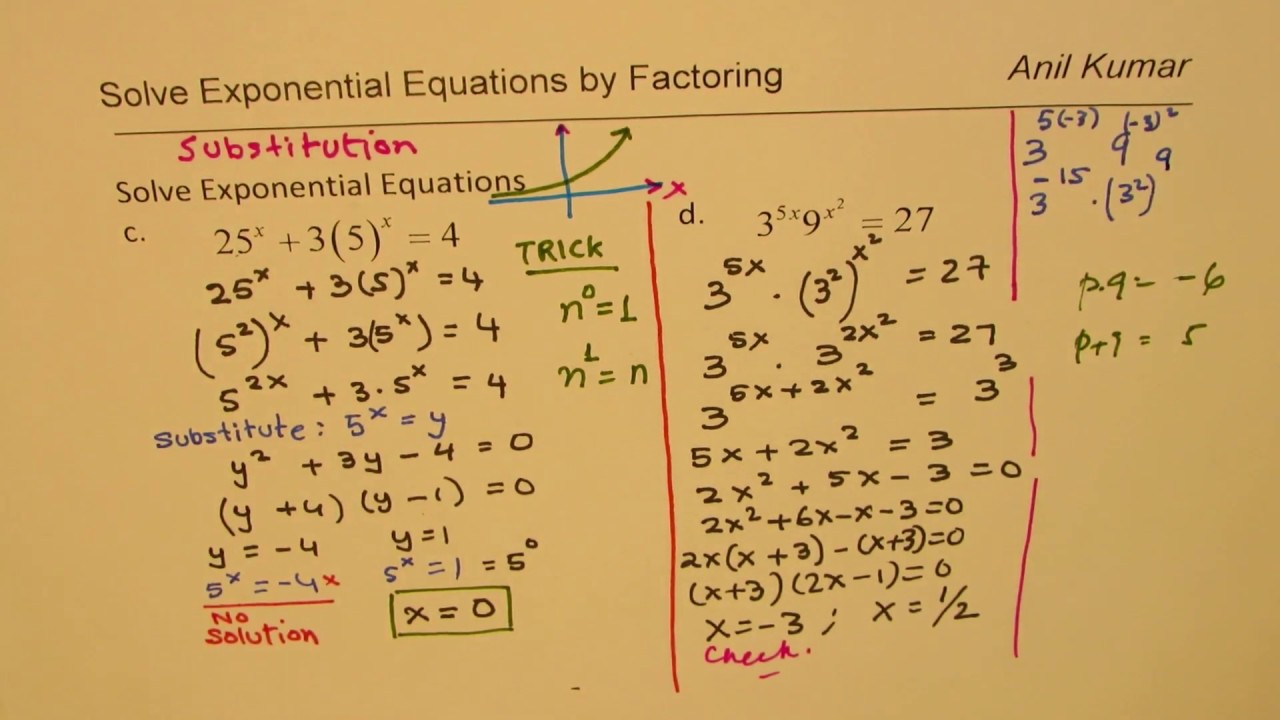 Solve Exponential Equations by Factoring
Anil Kumar
Substitution
Solve Exponential Equations
x
c.
25ˣ + 3(5)ˣ = 4
25ˣ + 3(5)ˣ = 4
(5²)ˣ + 3(5ˣ) = 4
5²ˣ + 3·5ˣ = 4
Substitute: 5ˣ = y
y² + 3y - 4 = 0
(y + 4) (y - 1) = 0
y = -4
y = 1
5ˣ = -4 x
5ˣ = 1 = 5⁰
No
Solution
x = 0
TRICK
n⁰ = 1
n¹ = n
d.
3^(5x) 9^(x²) = 27
3^(5x) · (3²)^(x²) = 27
3^(5x) · 3^(2x²) = 27
3^(5x + 2x²) = 3³
5x + 2x² = 3
2x² + 5x - 3 = 0
2x² + 6x - x - 3 = 0
2x(x + 3) - (x+3) = 0
(x+3) (2x - 1) = 0
x = -3 ; x = 1/2
Check.
3^(5(-3)) 9^((-3)²)
3^(-15) · (3²)^9
p.q = -6
p+q = 5